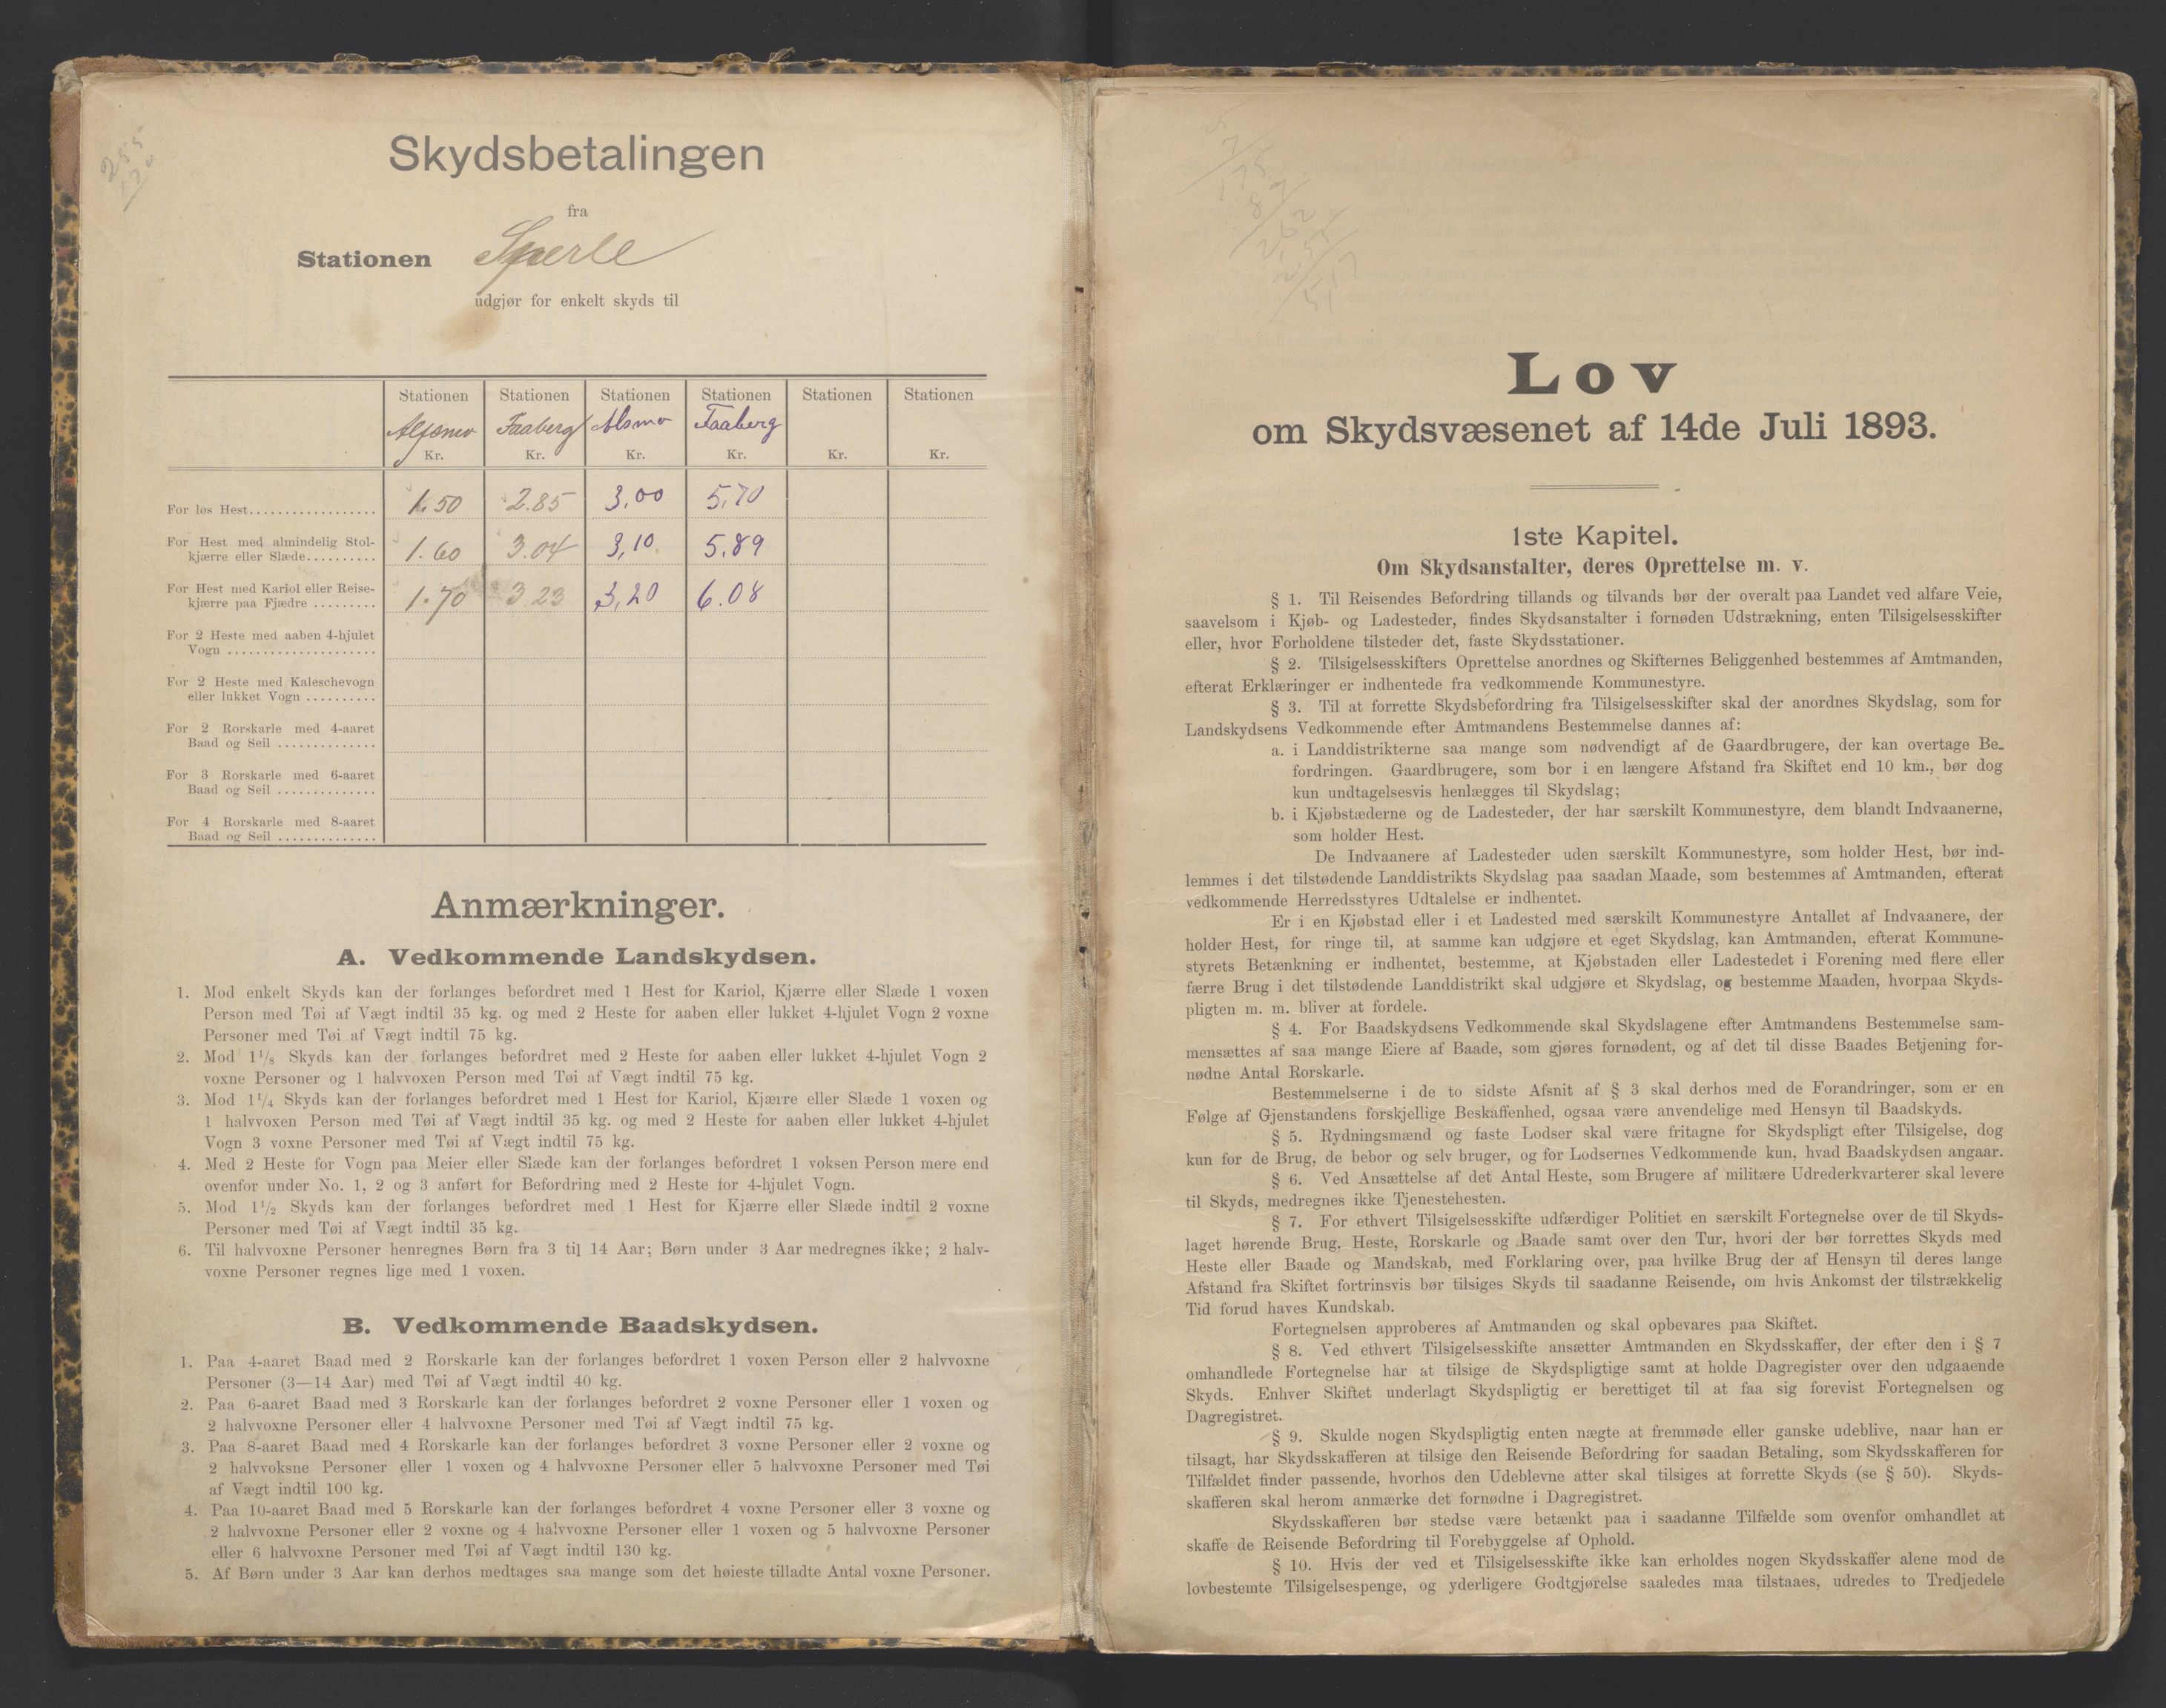 Skydsbetalingen
fra
Stationen Sperle
udgjør for enkelt skyds til
Stationen Stationen Stationen Stationen Stationen Stationen
Faaberg Alsmo Faaberg
Kr. Kr. Kr. Kr. Kr. Kr.
For løs Hest.................. 1.50 2.85 3,00 5,70
For Hest med almindelig Stol-
kjærre eller Slæde.......... 1.60 3.04 3,10 5,89
For Hest med Kariol eller Reise-
kjærre paa Fjædre ......... 1.70 3.23 3,20 6.08
For 2 Heste med aaben 4-hjulet
Vogn .....................
For 2 Heste med Kaleschevogn
eller lukket Vogn ..........
For 2 Rorskarle med 4-aaret
Baad og Seil ..............
For 3 Rorskarle med 6-aaret
Baad og Seil ..............
For 4 Rorskarle med 8-aaret
Baad og Seil ..............
Anmærkninger.
A. Vedkommende Landskydsen.
1. Mod enkelt Skyds kan der forlanges befordret med 1 Hest for Kariol, Kjærre eller Slæde 1 voxen
Person med Tøi af Vægt indtil 35 kg. og med 2 Heste for aaben eller lukket 4-hjulet Vogn 2 voxne
Personer med Tøi af Vægt indtil 75 kg.
2. Mod 1¹/₈ Skyds kan der forlanges befordret med 2 Heste for aaben eller lukket 4-hjulet Vogn 2
voxne Personer og 1 halvvoxen Person med Tøi af Vægt indtil 75 kg.
3. Mod 1¹/₄ Skyds kan der forlanges befordret med 1 Hest for Kariol, Kjærre eller Slæde 1 voxen og
1 halvvoxen Person med Tøi af Vægt indtil 35 kg. og med 2 Heste for aaben eller lukket 4-hjulet
Vogn 3 voxne Personer med Tøi af Vægt indtil 75 kg.
4. Med 2 Heste for Vogn paa Meier eller Slæde kan der forlanges befordret 1 voksen Person mere end
ovenfor under No. 1, 2 og 3 anført for Befordring med 2 Heste for 4-hjulet Vogn.
5. Mod 1¹/₂ Skyds kan der forlanges befordret med 1 Hest for Kjærre eller Slæde indtil 2 voxne
Personer med Tøi af Vægt indtil 35 kg.
6. Til halvvoxne Personer henregnes Børn fra 3 til 14 Aar; Børn under 3 Aar medregnes ikke; 2 halv-
voxne Personer regnes lige med 1 voxen.
B. Vedkommende Baadskydsen.
1. Paa 4-aaret Baad med 2 Rorskarle kan der forlanges befordret 1 voxen Person eller 2 halvvoxne
Personer (3—14 Aar) med Tøi af Vægt indtil 40 kg.
2. Paa 6-aaret Baad med 3 Rorskarle kan der forlanges befordret 2 voxne Personer eller 1 voxen og
2 halvvoxne Personer eller 4 halvvoxne Personer med Tøi af Vægt indtil 75 kg.
3. Paa 8-aaret Baad med 4 Rorskarle kan der forlanges befordret 3 voxne Personer eller 2 voxne og
2 halvvoksne Personer eller 1 voxen og 4 halvvoxne Personer eller 5 halvvoxne Personer med Tøi
af Vægt indtil 100 kg.
4. Paa 10-aaret Baad med 5 Rorskarle kan der forlanges befordret 4 voxne Personer eller 3 voxne og
2 halvvoxne Personer eller 2 voxne og 4 halvvoxne Personer eller 1 voxen og 5 halvvoxne Personer
eller 6 halvvoxne Personer med Tøi af Vægt indtil 130 kg.
5. Af Børn under 3 Aar kan derhos medtages saa mange som det høieste tilladte Antal voxne Personer.
Lov
om Skydsvæsenet af 14de Juli 1893.
1ste Kapitel.
Om Skydsanstalter, deres Oprettelse m. v.
§ 1. Til Reisendes Befordring tillands og tilvands bør der overalt paa Landet ved alfare Veie,
saavelsom i Kjøb- og Ladesteder, findes Skydsanstalter i fornøden Udstrækning, enten Tilsigelsesskifter
eller, hvor Forholdene tilsteder det, faste Skydsstationer.
§ 2. Tilsigelsesskifters Oprettelse anordnes og Skifternes Beliggenhed bestemmes af Amtmanden,
efterat Erklæringer er indhentede fra vedkommende Kommunestyre.
§ 3. Til at forrette Skydsbefordring fra Tilsigelsesskifter skal der anordnes Skydslag, som for
Landskydsens Vedkommende efter Amtmandens Bestemmelse dannes af:
a. i Landdistrikterne saa mange som nødvendigt af de Gaardbrugere, der kan overtage Be-
fordringen. Gaardbrugere, som bor i en længere Afstand fra Skiftet end 10 km., bør dog
kun undtagelsesvis henlægges til Skydslag;
b. i Kjøbstæderne og de Ladesteder, der har særskilt Kommunestyre, dem blandt Indvaanerne,
som holder Hest.
De Indvaanere af Ladesteder uden særskilt Kommunestyre, som holder Hest, bør ind-
lemmes i det tilstødende Landdistrikts Skydslag paa saadan Maade, som bestemmes af Amtmanden, efterat
vedkommende Herredsstyres Udtalelse er indhentet.
Er i en Kjøbstad eller i et Ladested med særskilt Kommunestyre Antallet af Indvaanere, der
holder Hest, for ringe til, at samme kan udgjøre et eget Skydslag, kan Amtmanden, efterat Kommune-
styrets Betænkning er indhentet, bestemme, at Kjøbstaden eller Ladestedet i Forening med flere eller
færre Brug i det tilstødende Landdistrikt skal udgjøre et Skydslag, og bestemme Maaden, hvorpaa Skyds-
pligten m. m. bliver at fordele.
§ 4. For Baadskydsens Vedkommende skal Skydslagene efter Amtmandens Bestemmelse sam-
mensættes af saa mange Eiere af Baade, som gjøres fornødent, og af det til disse Baades Betjening for-
nødne Antal Rorskarle.
Bestemmelserne i de to sidste Afsnit af § 3 skal derhos med de Forandringer, som er en
Følge af Gjenstandens forskjellige Beskaffenhed, ogsaa være anvendelige med Hensyn til Baadskyds.
§ 5. Rydningsmænd og faste Lodser skal være fritagne for Skydspligt efter Tilsigelse, dog
kun for de Brug, de bebor og selv bruger, og for Lodsernes Vedkommende kun, hvad Baadskydsen angaar.
§ 6. Ved Ansættelse af det Antal Heste, som Brugere af militære Udrederkvarterer skal levere
til Skyds, medregnes ikke Tjenestehesten.
§ 7. For ethvert Tilsigelsesskifte udfærdiger Politiet en særskilt Fortegnelse over de til Skyds-
laget hørende Brug, Heste, Rorskarle og Baade samt over den Tur, hvori der bør forrettes Skyds med
Heste eller Baade og Mandskab, med Forklaring over, paa hvilke Brug der af Hensyn til deres lange
Afstand fra Skiftet fortrinsvis bør tilsiges Skyds til saadanne Reisende, om hvis Ankomst der tilstrækkelig
Tid forud haves Kundskab.
Fortegnelsen approberes af Amtmanden og skal opbevares paa Skiftet.
§ 8. Ved ethvert Tilsigelsesskifte ansætter Amtmanden en Skydsskaffer, der efter den i § 7
omhandlede Fortegnelse har at tilsige de Skydspligtige samt at holde Dagregister over den udgaaende
Skyds. Enhver Skiftet underlagt Skydspligtig er berettiget til at faa sig forevist Fortegnelsen og
Dagregistret.
§ 9. Skulde nogen Skydspligtig enten nægte at fremmøde eller ganske udeblive, naar han er
tilsagt, har Skydsskafferen at tilsige den Reisende Befordring for saadan Betaling, som Skydsskafferen for
Tilfældet finder passende, hvorhos den Udeblevne atter skal tilsiges at forrette Skyds (se § 50). Skyds-
skafferen skal herom anmærke det fornødne i Dagregistret.
Skydsskafferen bør stedse være betænkt paa i saadanne Tilfælde som ovenfor omhandlet at
skaffe de Reisende Befordring til Forebyggelse af Ophold.
§ 10. Hvis der ved et Tilsigelsesskifte ikke kan erholdes nogen Skydsskaffer alene mod de
lovbestemte Tilsigelsespenge, og yderligere Godtgjørelse saaledes maa tilstaaes, udredes to Tredjedele